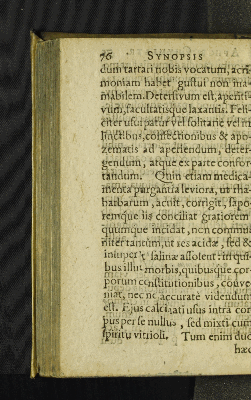 76 SYNOPSIS
dum tartari nobis vocatum, acri-
moniam habet gustui non ina-
mabilem. Detersivum est, aperiti-
vum, facultatisque laxantis. Feli-
citer usurpatur vel solitarie vel in
linctibus, confectionibus & apo-
zematis ad aperiendum, deter-
gendum, atque ex parte confor-
tandum. Quin etiam medica-
menta purgantia leviora, ut rha-
barbarum, acuit, corrigit, sapo-
remque iis conciliat gratiorem
quumque incidat, non commu-
niter tantum, ut res acidæ, sed &
insuper, salinæ assolent: in qui-
bus illis morbis, quibusque cor-
porum constitutionibus, conve-
niat, nec ne accurate videndum
est. Ejus calcinati usus intra cor-
pus per se nullus, sed mixti cum
spiritu vitrioli. Tum enim duo
hæc